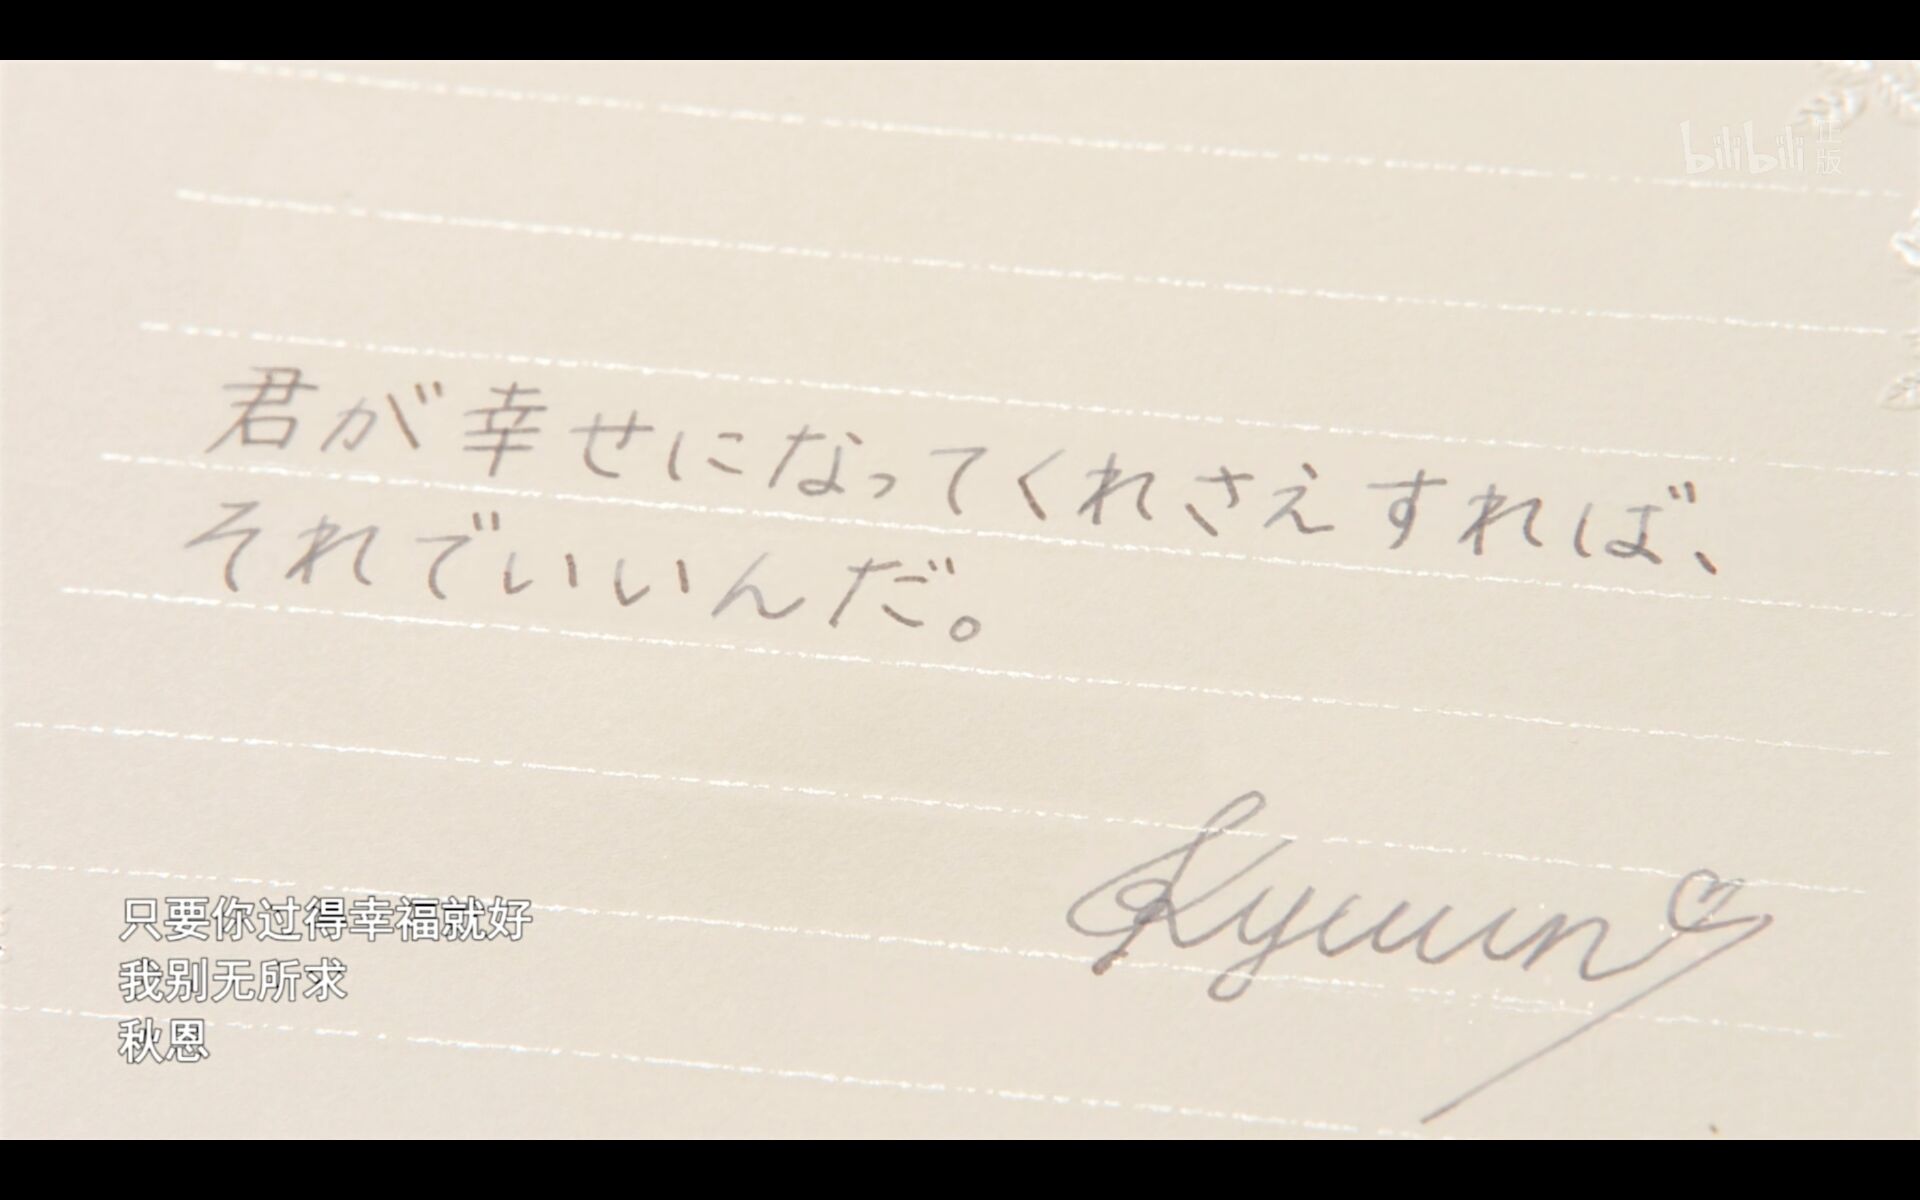 bilibili 正版
君が幸せになってくれさえすれば、
それでいいんだ。
Kyuun
只要你过得幸福就好
我别无所求
秋恩